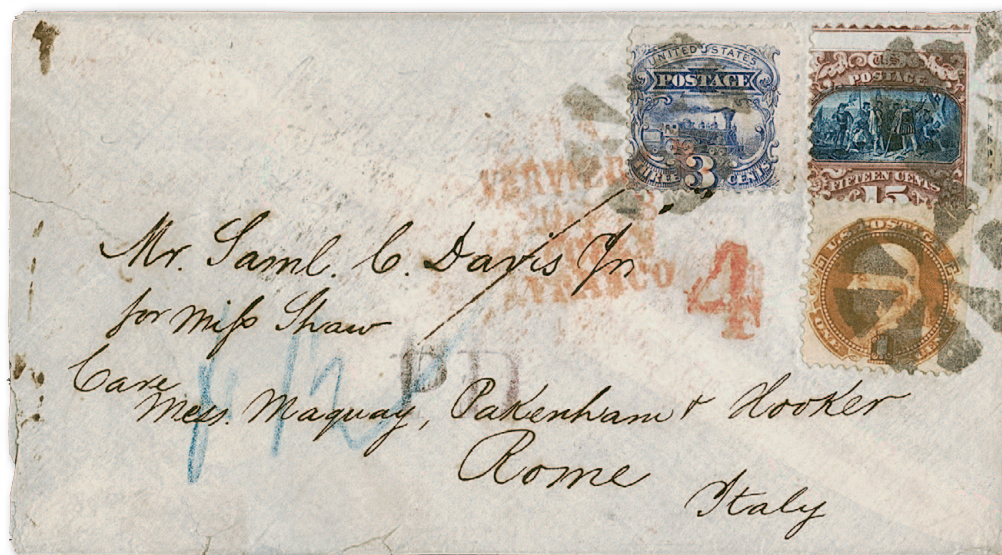 UNITED STATES
POSTAGE
THREE 3 CENTS
U.S.
POSTAGE
FIFTEEN CENTS
15
U.S. POSTAGE
1
FRANCO
4
Mr. Saml. C. Davis Jr
for Miss Shaw
PD
Care
Mess. Maquay, Pakenham & Hooker
Rome
Italy